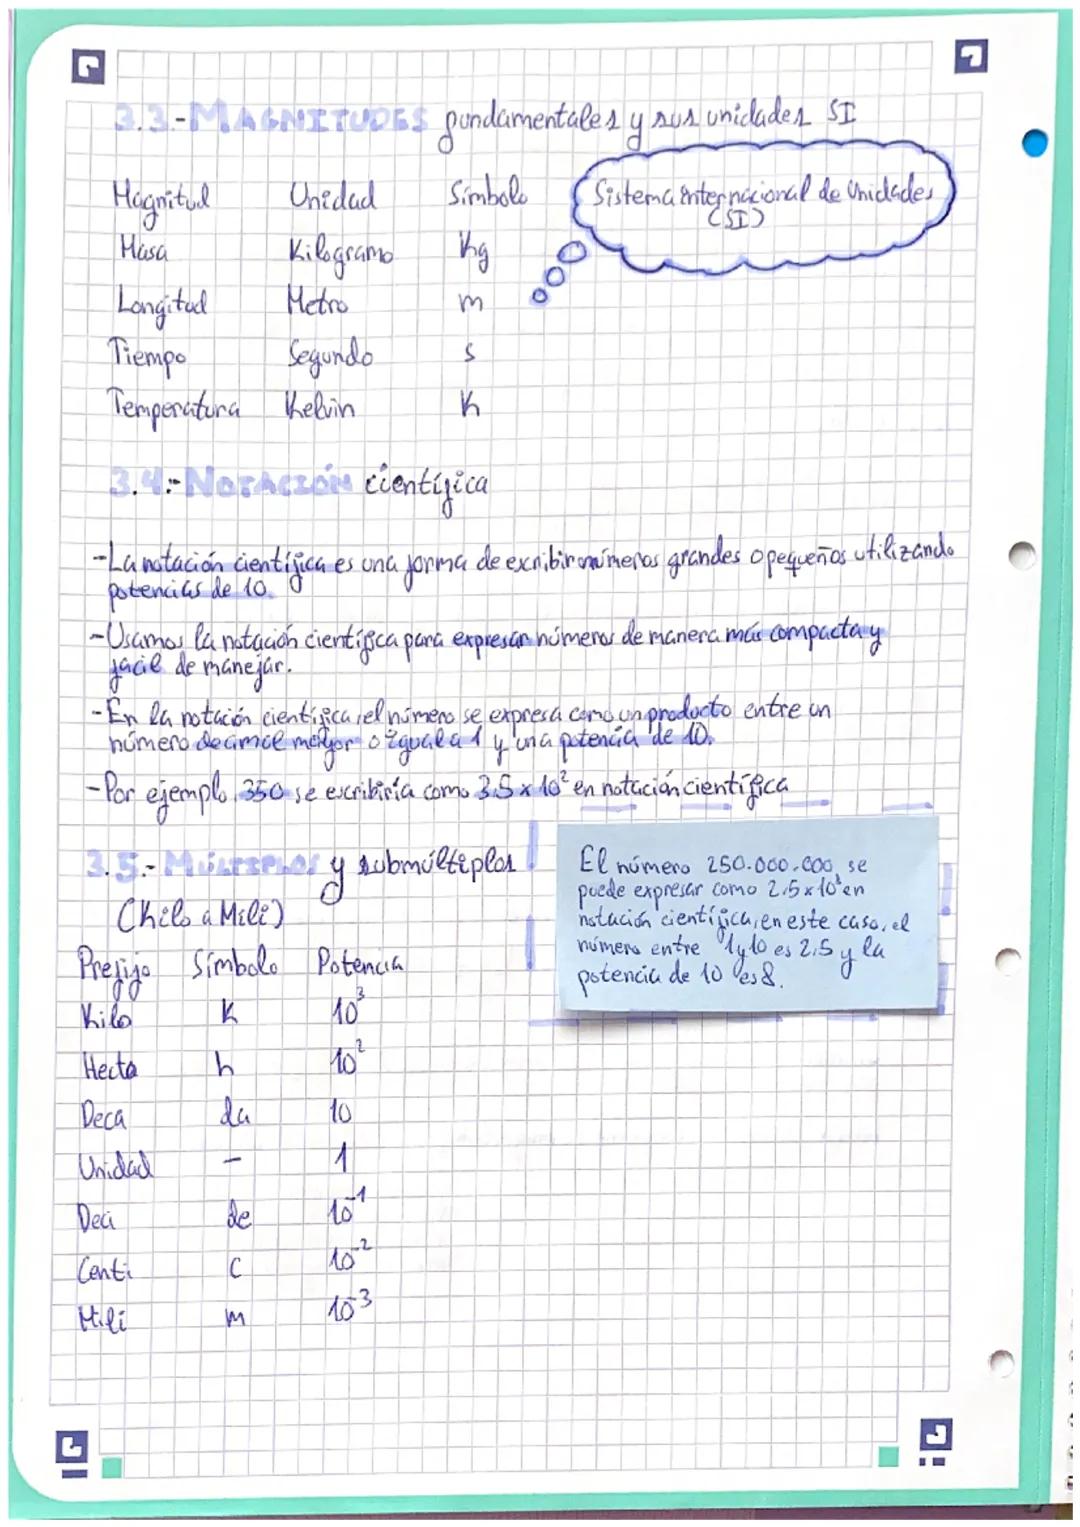 3.3.-MAGNITUDES fundamentales y sus unidades SI
Sistema internacional de Unidades
(SI)
Magnitud Unidad Símbolo
Masa Kilogramo Kg
Longitud Metro m
Tiempo Segundo s
Temperatura Kelvin K
3.4.-NOTACIÓN científica
-La notación científica es una forma de escribir números grandes o pequeños utilizando
potencias de 10.
-Usamos la notación científica para expresar números de manera más compacta y
facil de manejar.
-En la notación científica, el número se expresa como un producto entre un
número decimal mayor o igual a 1 y una potencia de 10.
-Por ejemplo, 350 se escribiría como 3.5 x 10² en notación científica
3.5.-MÚLTIPLOS y submúltiplos
(Kilo a Mili)
Prefijo Símbolo Potencia
Kilo K 10³
Hecta h 10²
Deca da 10
Unidad - 1
Deci de 10⁻¹
Centi c 10⁻²
Mili m 10⁻³
El número 250.000.000, se
puede expresar como 2.5 x 10⁸ en
notación científica, en este caso, el
número entre 1 y 10 es 2.5 y la
potencia de 10 es 8.